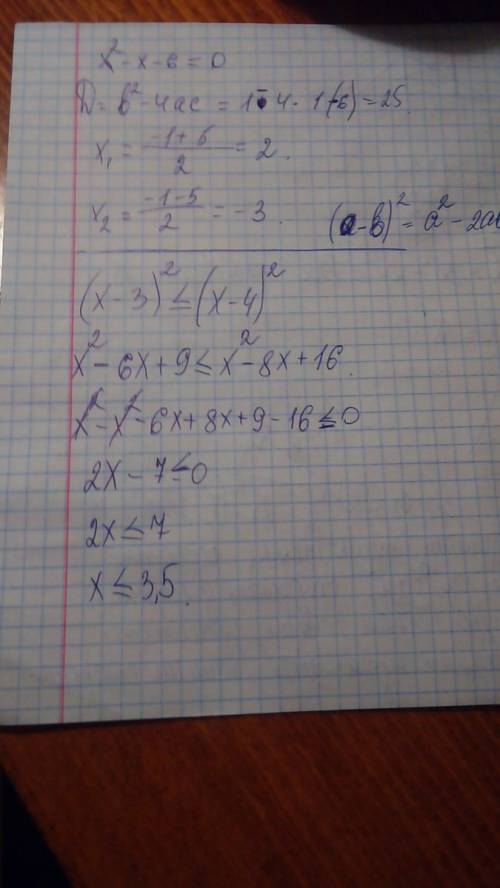 x² - x - 6 = 0
D = b² - 4ac = 1 - 4 · 1(-6) = 25
x₁ = (-1 + 5)/2 = 2.
x₂ = (-1 - 5)/2 = -3.
(a-b)² = a² - 2ab
(x - 3)² ≤ (x - 4)²
x² - 6x + 9 ≤ x² - 8x + 16.
x² - x² - 6x + 8x + 9 - 16 ≤ 0
2x - 7 ≤ 0
2x ≤ 7
x ≤ 3,5.